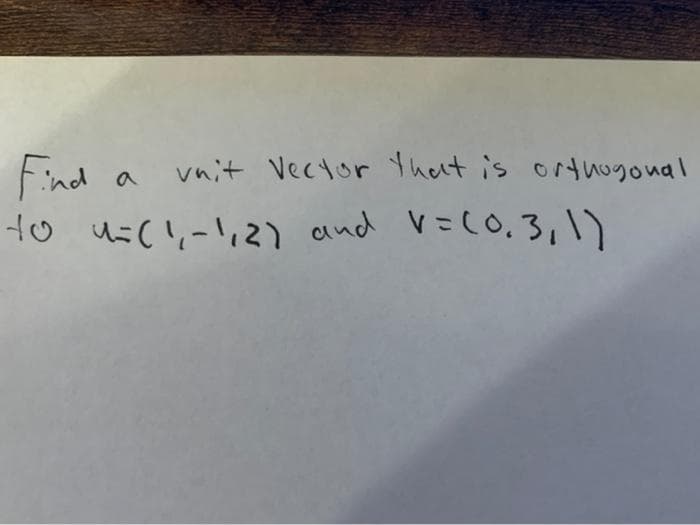 Find a unit vector that is orthogonal
to u=(1,-1,2) and v=(0,3,1)